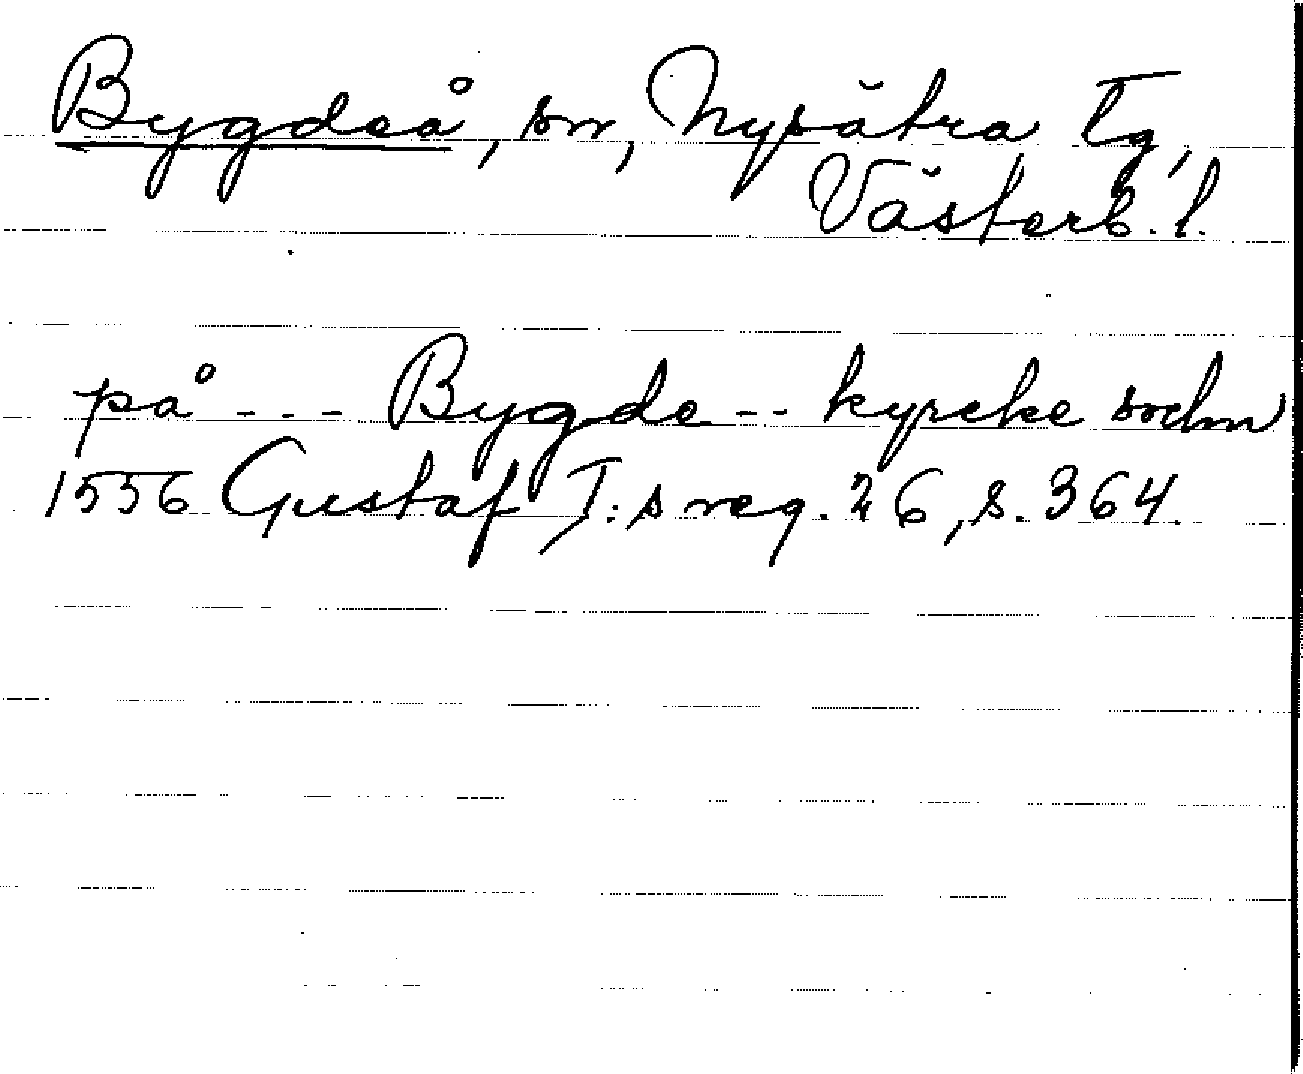 Bygdeå, sn, Nysätra Tg,
Västerb. l.
på - - - Bygde - - kyrcke sochn
1556 Gustaf I:s reg. 26, s. 364.